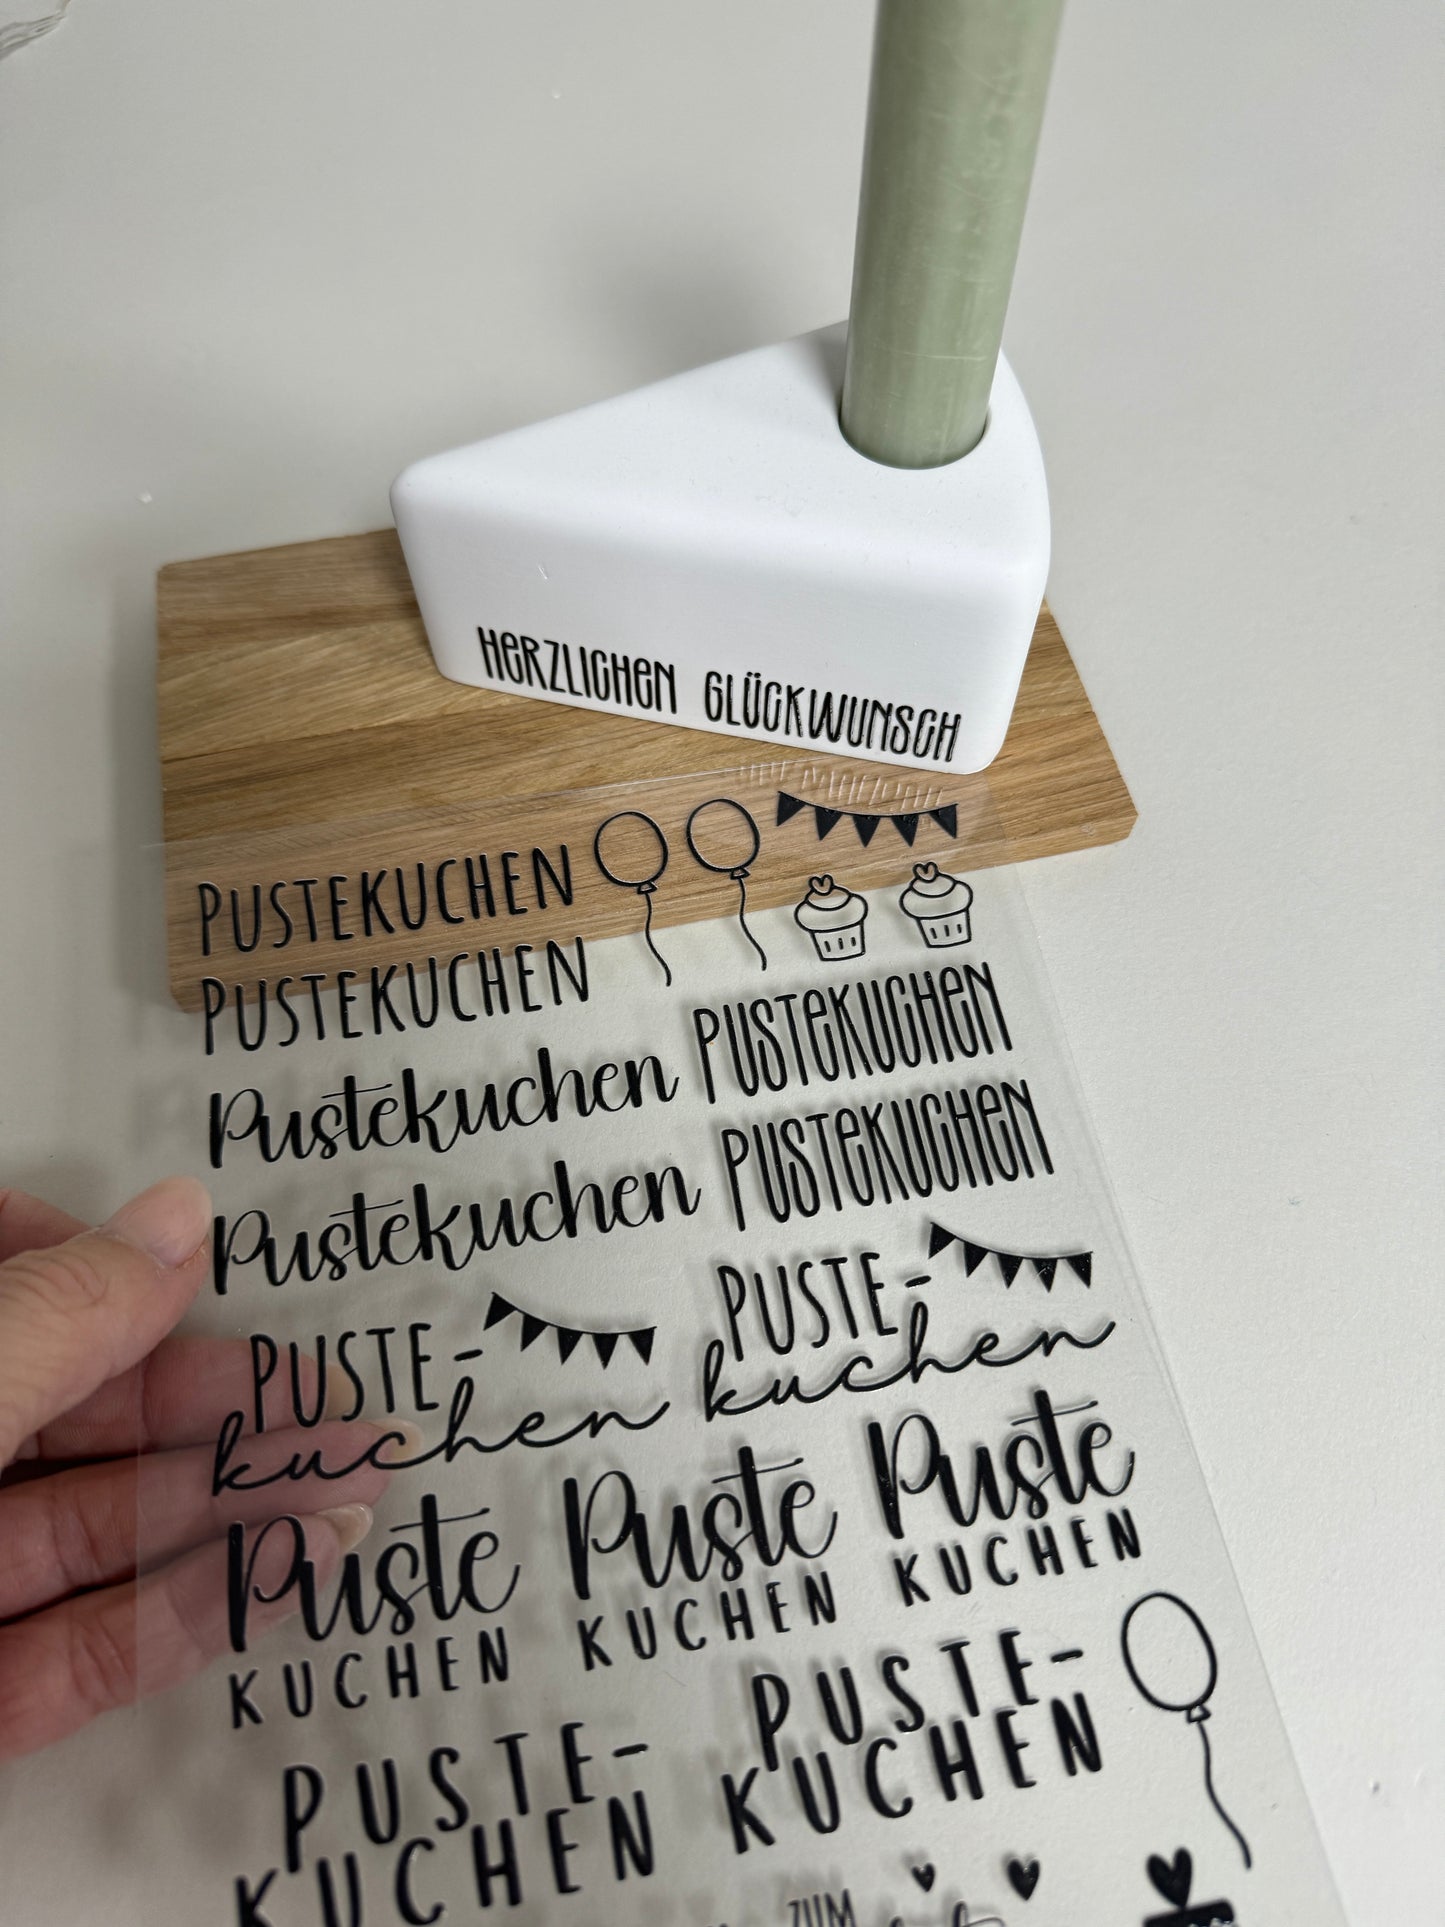 HERZLICHEN GLÜCKWUNSCH
PUSTEKUCHEN
PUSTEKUCHEN
Pustekuchen PUSTEKUCHEN
Pustekuchen PUSTEKUCHEN
PUSTE-
kuchen
PUSTE-
kuchen
Puste
KUCHEN
Puste
KUCHEN
Puste
KUCHEN
PUSTE-
KUCHEN
PUSTE-
KUCHEN
ZUM